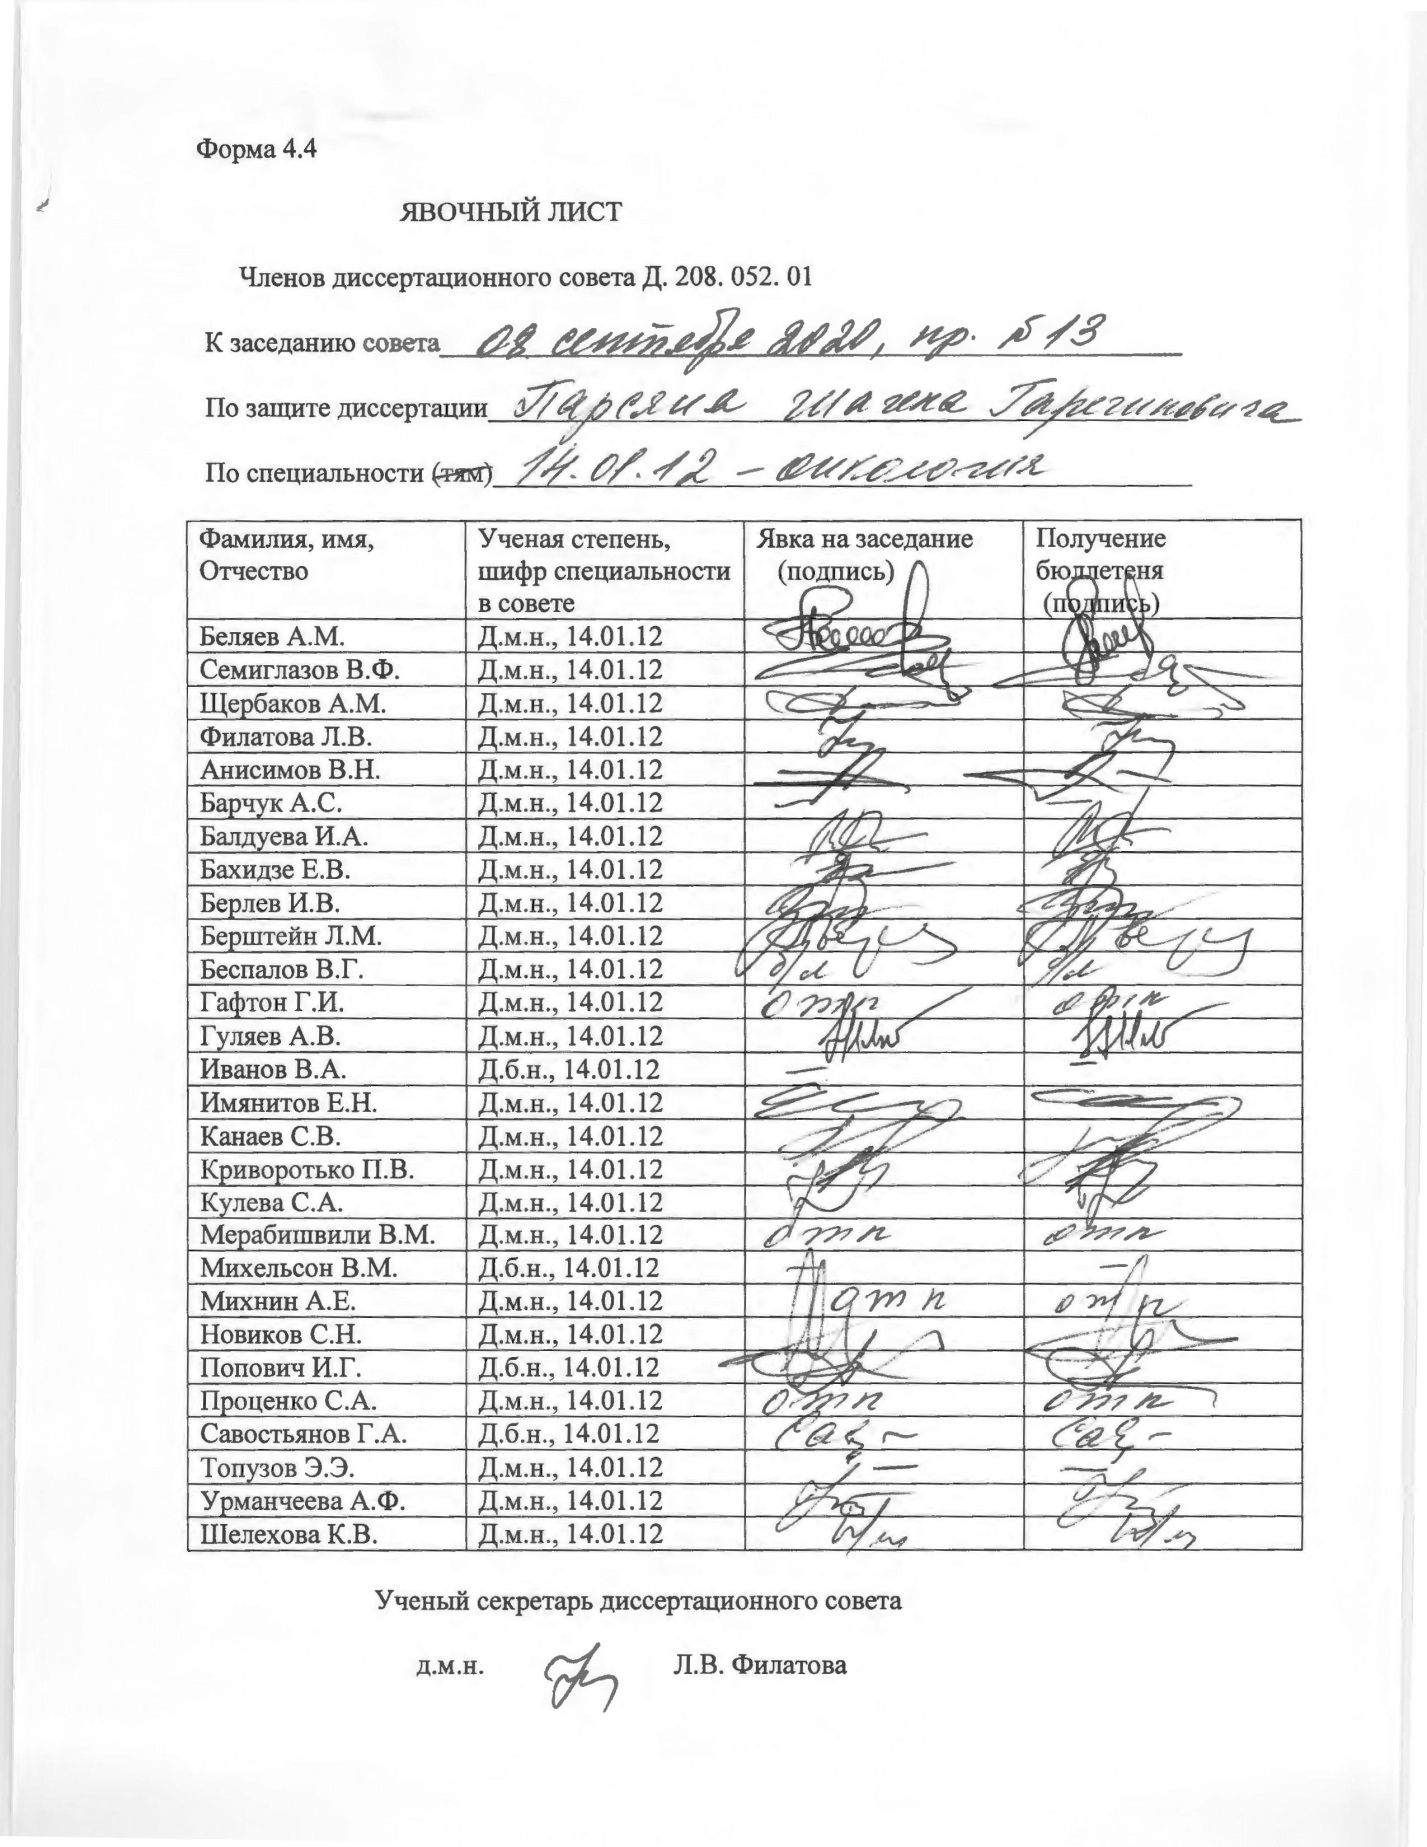 Форма 4.4
ЯВОЧНЫЙ ЛИСТ
Членов диссертационного совета Д. 208. 052. 01
К заседанию совета 08 сентября 2020, пр. №13
По защите диссертации Парсяна Шагена Гарегиновича
По специальности (тям) 14.01.12 – онкология
Фамилия, имя, Отчество Ученая степень, шифр специальности в совете Явка на заседание (подпись) Получение бюллетеня (подпись)
Беляев А.М. Д.м.н., 14.01.12
Семиглазов В.Ф. Д.м.н., 14.01.12
Щербаков А.М. Д.м.н., 14.01.12
Филатова Л.В. Д.м.н., 14.01.12
Анисимов В.Н. Д.м.н., 14.01.12
Барчук А.С. Д.м.н., 14.01.12 – –
Балдуева И.А. Д.м.н., 14.01.12
Бахидзе Е.В. Д.м.н., 14.01.12
Берлев И.В. Д.м.н., 14.01.12
Берштейн Л.М. Д.м.н., 14.01.12
Беспалов В.Г. Д.м.н., 14.01.12 б/л б/л
Гафтон Г.И. Д.м.н., 14.01.12 отп отп
Гуляев А.В. Д.м.н., 14.01.12
Иванов В.А. Д.б.н., 14.01.12 – –
Имянитов Е.Н. Д.м.н., 14.01.12
Канаев С.В. Д.м.н., 14.01.12
Криворотько П.В. Д.м.н., 14.01.12
Кулева С.А. Д.м.н., 14.01.12
Мерабишвили В.М. Д.м.н., 14.01.12 отп отп
Михельсон В.М. Д.б.н., 14.01.12 – –
Михнин А.Е. Д.м.н., 14.01.12 отп отп
Новиков С.Н. Д.м.н., 14.01.12
Попович И.Г. Д.б.н., 14.01.12
Проценко С.А. Д.м.н., 14.01.12 отп отп
Савостьянов Г.А. Д.б.н., 14.01.12
Топузов Э.Э. Д.м.н., 14.01.12 – –
Урманчеева А.Ф. Д.м.н., 14.01.12
Шелехова К.В. Д.м.н., 14.01.12
Ученый секретарь диссертационного совета
д.м.н. Л.В. Филатова